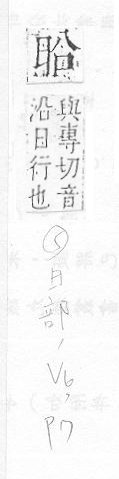 與專切音
沿日行也
⑤日部, V6, P7